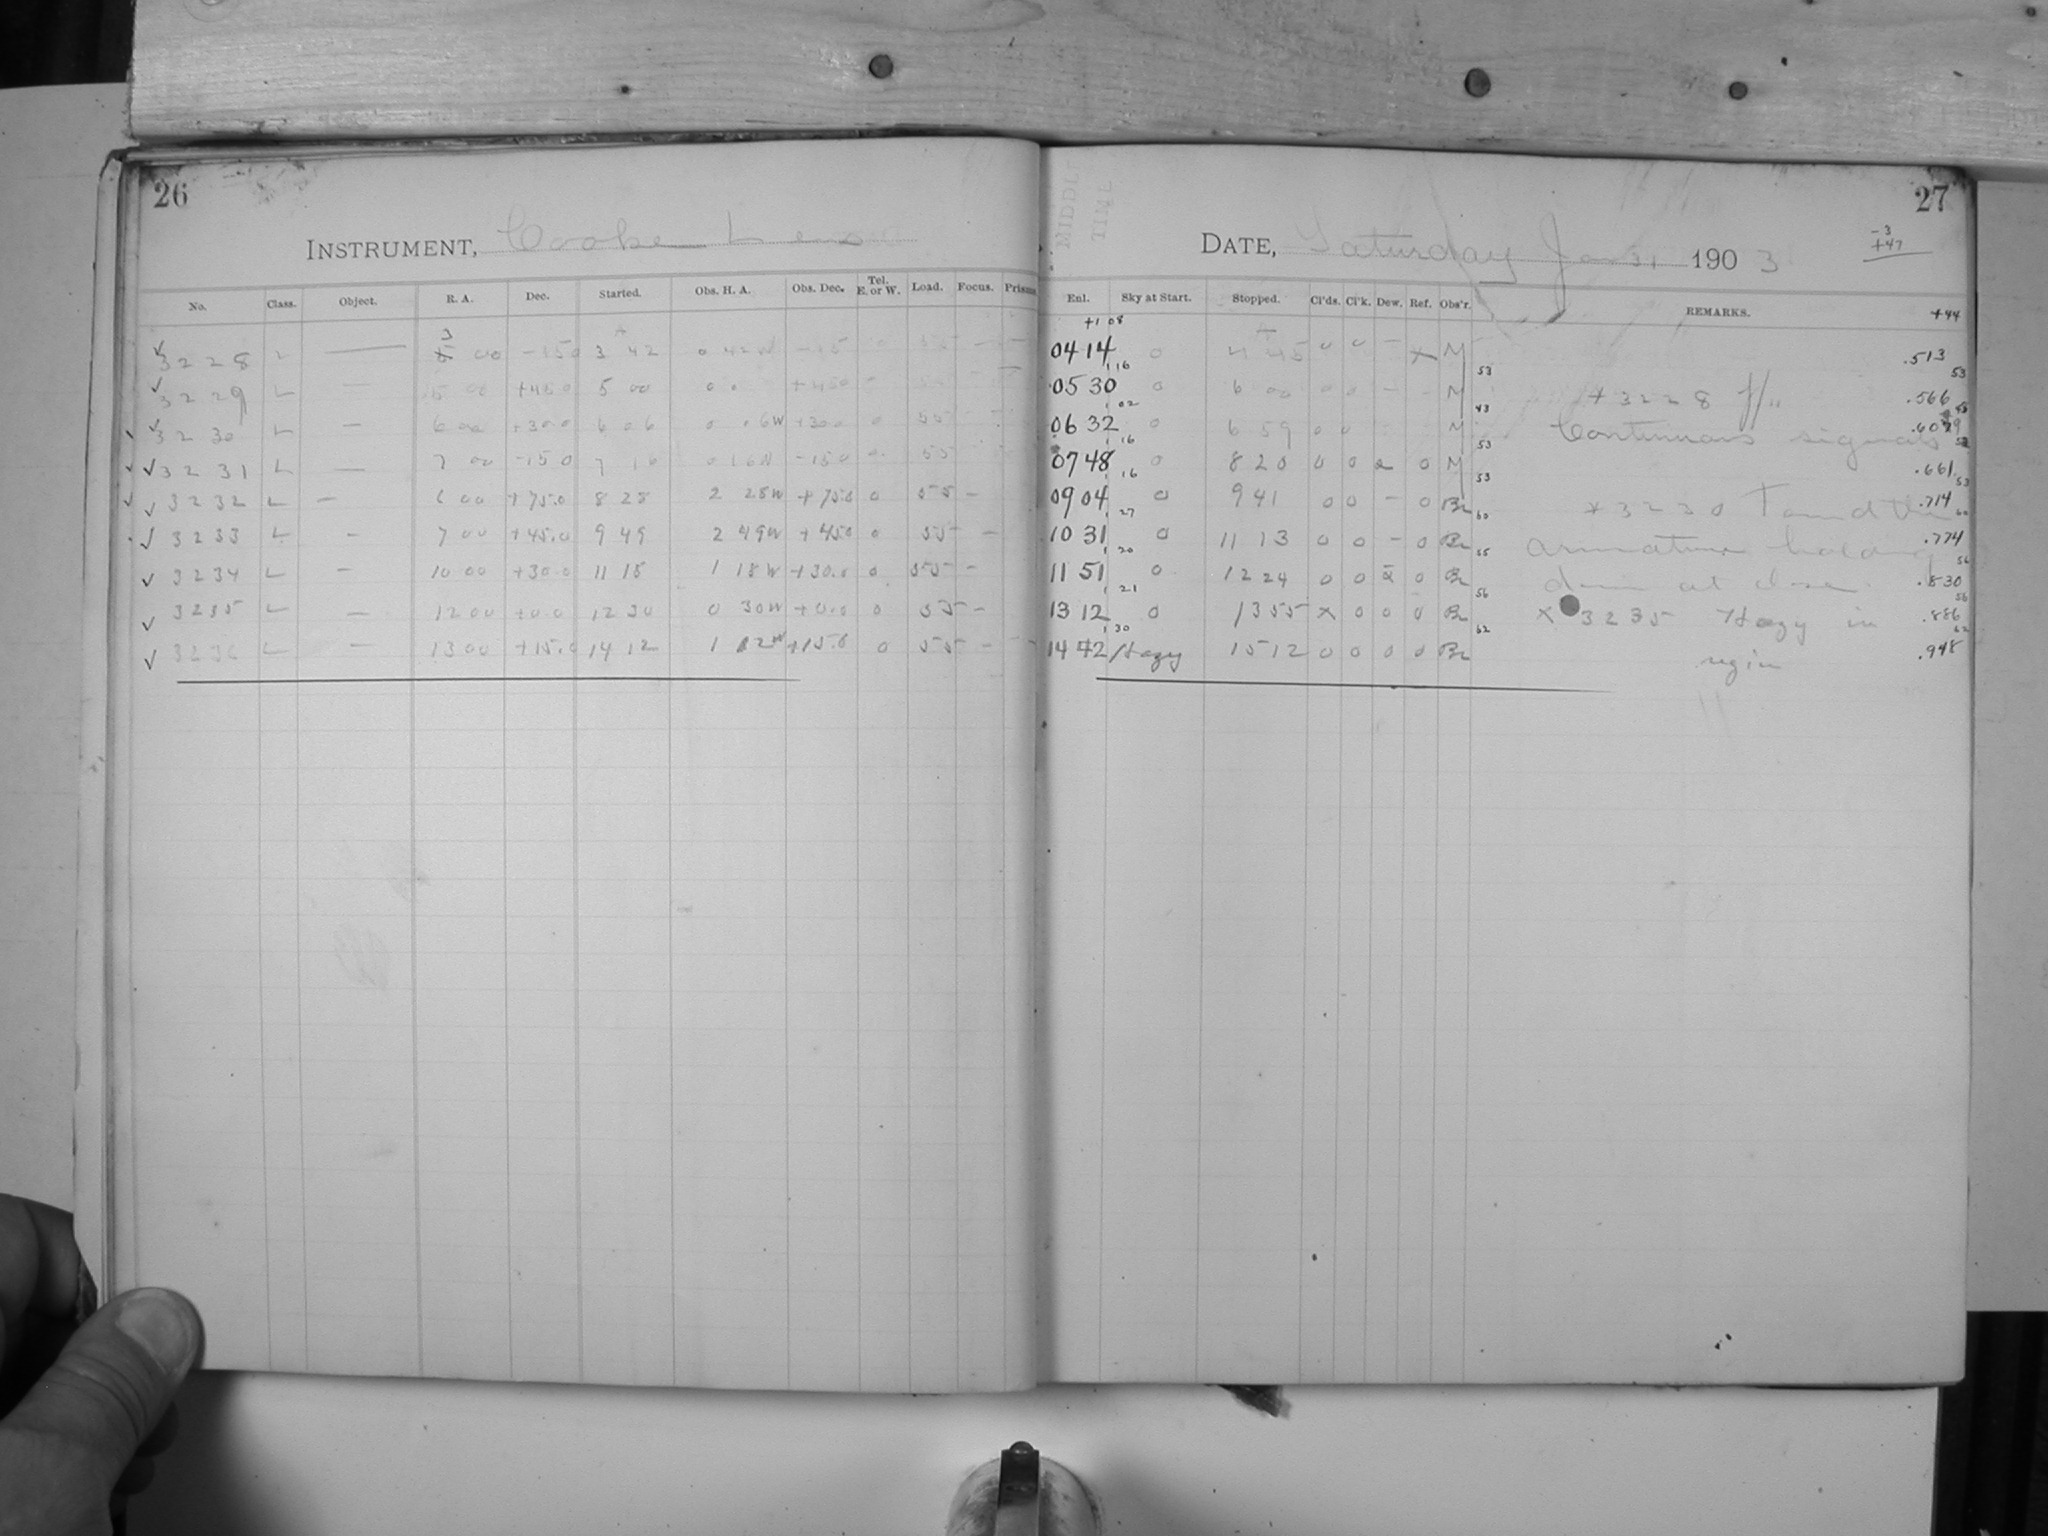 26
INSTRUMENT, Cooke Lens
No. Class. Object. R. A. Dec. Started. Obs. H. A. Obs. Dec. Tel. E. or W. Load. Focus. Prisms
3228 L — 3 00 -15.0 3 42 0 42W -15 0 55 — —
3229 L — 5 00 +45.0 5 00 0 0 +45.0
3230 L — 6 00 +30.0 6 06 0 06W +30.0 0 55
3231 L — 7 00 -15.0 7 16 0 16W -15.0 55
3232 L — 6 00 +75.0 8 28 2 28W +75.0 0 55 —
3233 L — 7 00 +45.0 9 49 2 49W +45.0 0 55 —
3234 L — 10 00 +30.0 11 18 1 18W +30.0 0 55 —
3235 L — 12 00 +0.0 12 30 0 30W +0.0 0 55 —
3236 L — 13 00 +15.0 14 12 1 12W +15.0 0 55 —
27
MIDDL
TIME
DATE, Saturday Jan 31 1903
-3
+47
Enl. Sky at Start. Stopped. Cl'ds. Cl'k. Dew. Ref. Obs'r. REMARKS. +44
+1 08
04 14 0 4 45 0 0 — x M .513
1 16 53 53
05 30 0 6 00 0 0 — M * 3228 .566
1 02 43
06 32 0 6 59 0 0 M Continuous signals
1 16 53
07 48 0 8 20 0 0 0 M .661
1 16 53 53
09 04 0 9 41 0 0 — 0 Br * 3230 Found the .714
1 27 60 60
10 31 0 11 13 0 0 — 0 Br armature holding .774
1 20 55 56
11 51 0 12 24 0 0 0 Br down at close. .830
1 21 56 56
13 12 0 13 55 x 0 0 0 Br x 3235 Hazy in .886
1 30 62 62
14 42 Hazy 15 12 0 0 0 0 Br region .948